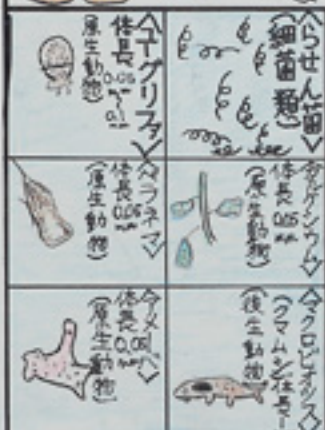 らせん菌
(細菌類)
ユーグリファ
体長
0.05
mm
~
0.1
mm
(原生動物)
体長
0.05
mm
(原生動物)
ペラネマ
体長
0.05
mm
(原生動物)
マクロビオツス
(クマムシ)体長1
(後生動物)
アメーバ
体長
0.05
(原生動物)